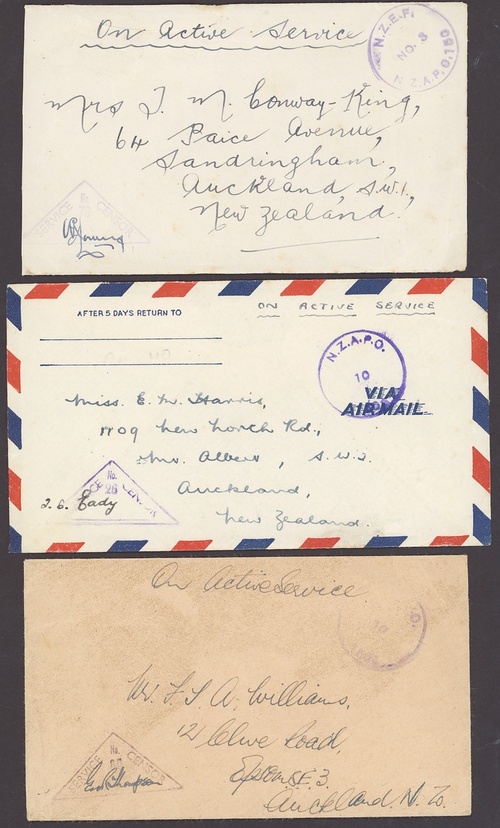 On Active Service
N.Z.E.F.
No. 3
N.Z.A.P.O. 150
Mrs J. M. Conway-King,
64 Paice Avenue,
Sandringham,
Auckland, S.W.1,
New Zealand.
SERVICE CENSOR
AFTER 5 DAYS RETURN TO
ON ACTIVE SERVICE
N.Z.A.P.O.
10
VIA
AIR MAIL
Miss. E. M. Harris,
1109 New North Rd.,
Mt. Albert, S.W.2
Auckland,
New Zealand.
No.
26
CENSOR
J. G. Eady
On Active Service
10
Mr. F. S. A. Williams,
12 Clive Road,
Epsom S.E.3.
Auckland, N. Z.
No.
SERVICE CENSOR